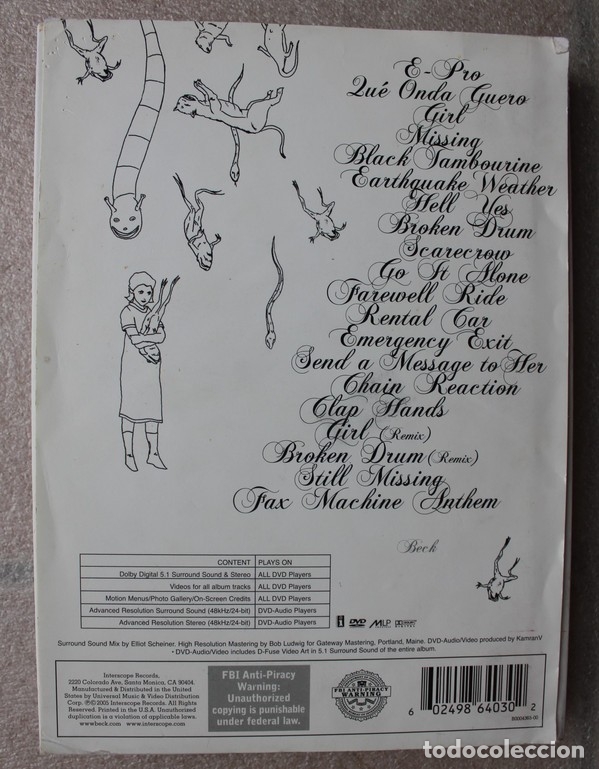 E-Pro
Qué Onda Guero
Girl
Missing
Black Tambourine
Earthquake Weather
Hell Yes
Broken Drum
Scarecrow
Go It Alone
Farewell Ride
Rental Car
Emergency Exit
Send a Message to Her
Chain Reaction
Clap Hands
Girl (Remix)
Broken Drum (Remix)
Still Missing
Fax Machine Anthem
Beck
CONTENT PLAYS ON
Dolby Digital 5.1 Surround Sound & Stereo ALL DVD Players
Videos for all album tracks ALL DVD Players
Motion Menus/Photo Gallery/On-Screen Credits ALL DVD Players
Advanced Resolution Surround Sound (48kHz/24-bit) DVD-Audio Players
Advanced Resolution Stereo (48kHz/24-bit) DVD-Audio Players
DVD MLP
Surround Sound Mix by Elliot Scheiner. High Resolution Mastering by Bob Ludwig for Gateway Mastering, Portland, Maine. DVD-Audio/Video produced by KamranV
• DVD-Audio/Video includes D-Fuse Video Art in 5.1 Surround Sound of the entire album.
Interscope Records.
2220 Colorado Ave, Santa Monica, CA 90404.
Manufactured & Distributed in the United
States by Universal Music & Video Distribution
Corp. ℗© 2005 Interscope Records. All Rights
Reserved. Printed in the U.S.A. Unauthorized
duplication is a violation of applicable laws.
www.beck.com www.interscope.com
FBI Anti-Piracy
Warning:
Unauthorized
copying is punishable
under federal law.
FBI ANTI-PIRACY
WARNING
6 02498 64030 2
todocoleccion